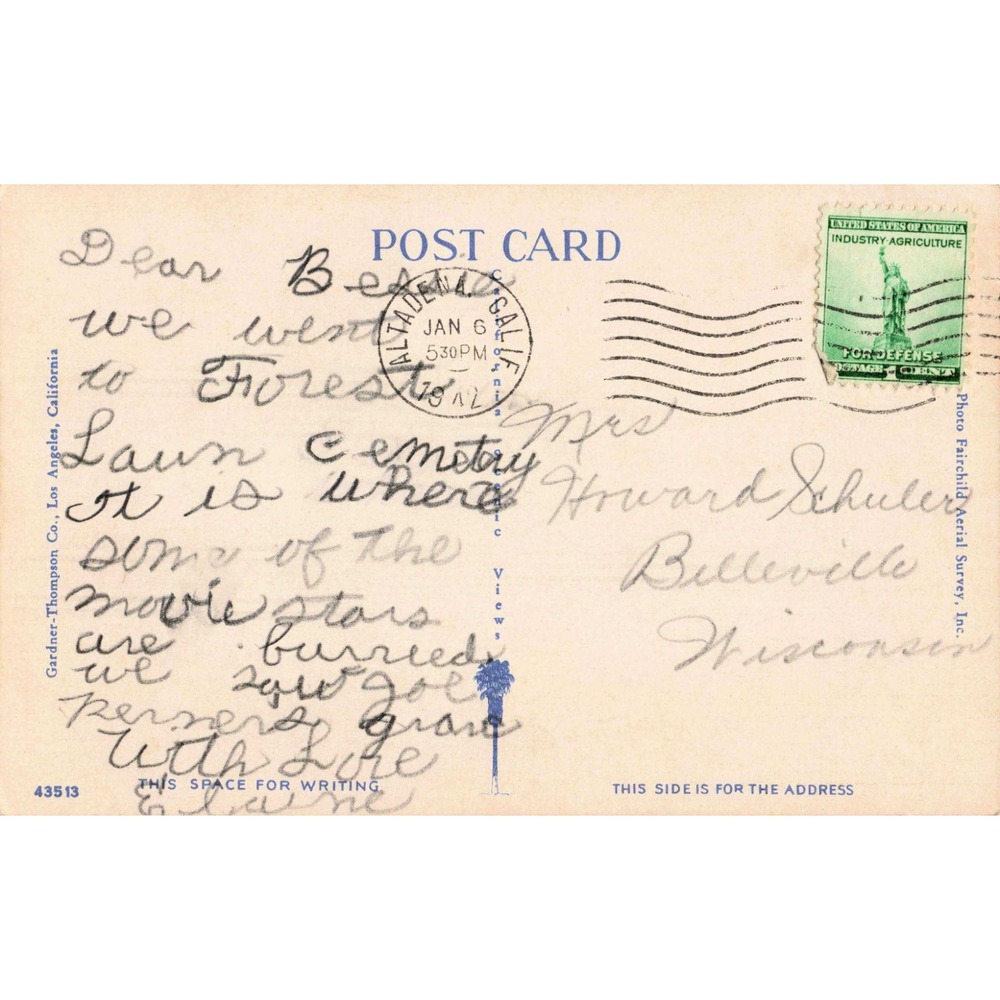 POST CARD
UNITED STATES OF AMERICA
INDUSTRY·AGRICULTURE
FOR DEFENSE
POSTAGE 1 CENT
ALTADENA, CALIF.
JAN 6
530PM
19
Dear Bessie
we went
to Forest
Lawn Cemetry
it is where
some of the
movie stars
are burried
we saw Joe
Perners grave
With Love
Elaine
Mrs
Howard Schuler
Belleville
Wisconsin
Gardner-Thompson Co., Los Angeles, California
California Scenic Views
Photo Fairchild Aerial Survey, Inc.
43513
THIS SPACE FOR WRITING
THIS SIDE IS FOR THE ADDRESS